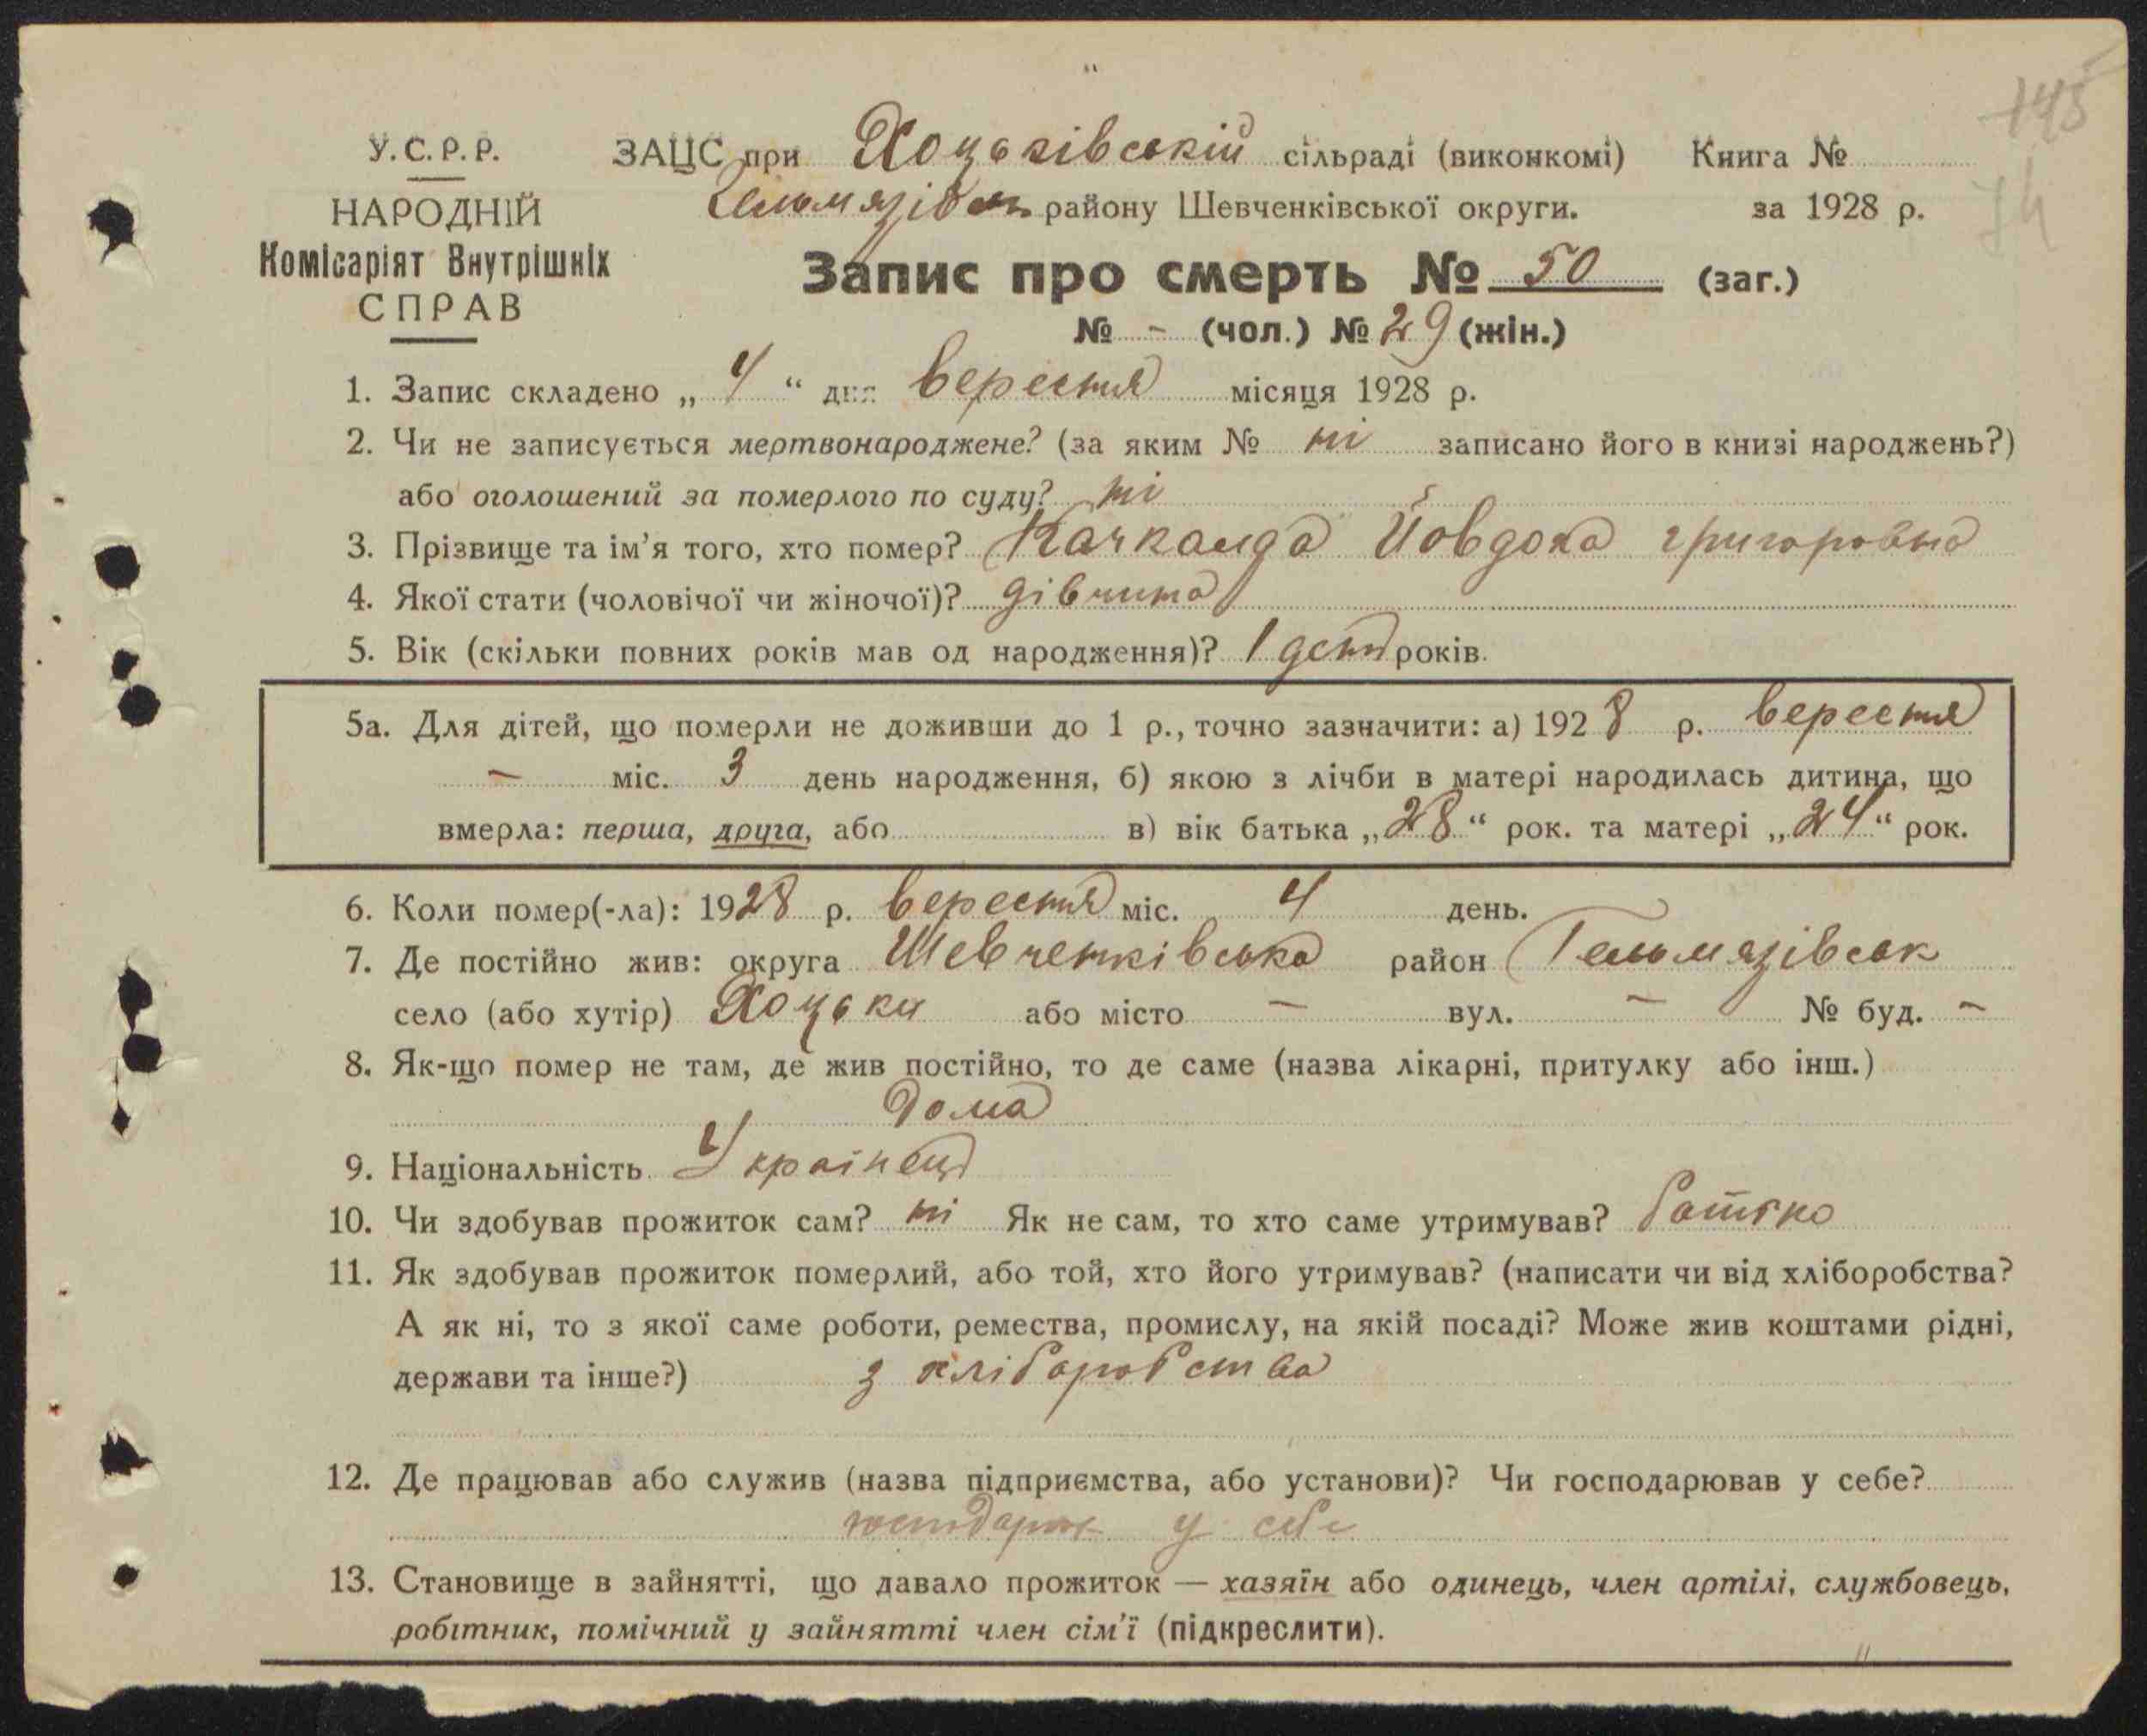 145
74
У.С.Р.Р.
НАРОДНІЙ
Комісаріят Внутрішніх
СПРАВ
ЗАЦС при Хоцьківській сільраді (виконкомі) Книга №
Гельмязівськ району Шевченківської округи. за 1928 р.
Запис про смерть № 50 (заг.)
№ - (чол.) № 29 (жін.)
1. Запис складено „ 4 “ дня вересня місяця 1928 р.
2. Чи не записується мертвонароджене? (за яким № ні записано його в книзі народжень?)
або оголошений за померлого по суду? ні
3. Прізвище та ім’я того, хто помер? Качканда Йовдоха григоровна
4. Якої стати (чоловічої чи жіночої)? дівчина
5. Вік (скільки повних років мав од народження)? 1 день років.
5а. Для дітей, що померли не доживши до 1 р., точно зазначити: а) 1928 р. вересня
- міс. 3 день народження, б) якою з лічби в матері народилась дитина, що
вмерла: перша, друга, або в) вік батька „28“ рок. та матері „24“ рок.
6. Коли помер(-ла): 1928 р. вересня міс. 4 день.
7. Де постійно жив: округа Шевченківська район Гельмязівськ
село (або хутір) Хоцьки або місто - вул. - № буд. -
8. Як-що помер не там, де жив постійно, то де саме (назва лікарні, притулку або інш.)
Дома
9. Національність Українець
10. Чи здобував прожиток сам? ні Як не сам, то хто саме утримував? батько
11. Як здобував прожиток померлий, або той, хто його утримував? (написати чи від хліборобства?
А як ні, то з якої саме роботи, ремества, промислу, на якій посаді? Може жив коштами рідні,
держави та інше?) з хліборобства
12. Де працював або служив (назва підприємства, або установи)? Чи господарював у себе?
у себе
13. Становище в зайнятті, що давало прожиток — хазяїн або одинець, член артілі, службовець,
робітник, помічний у зайнятті член сім’ї (підкреслити).